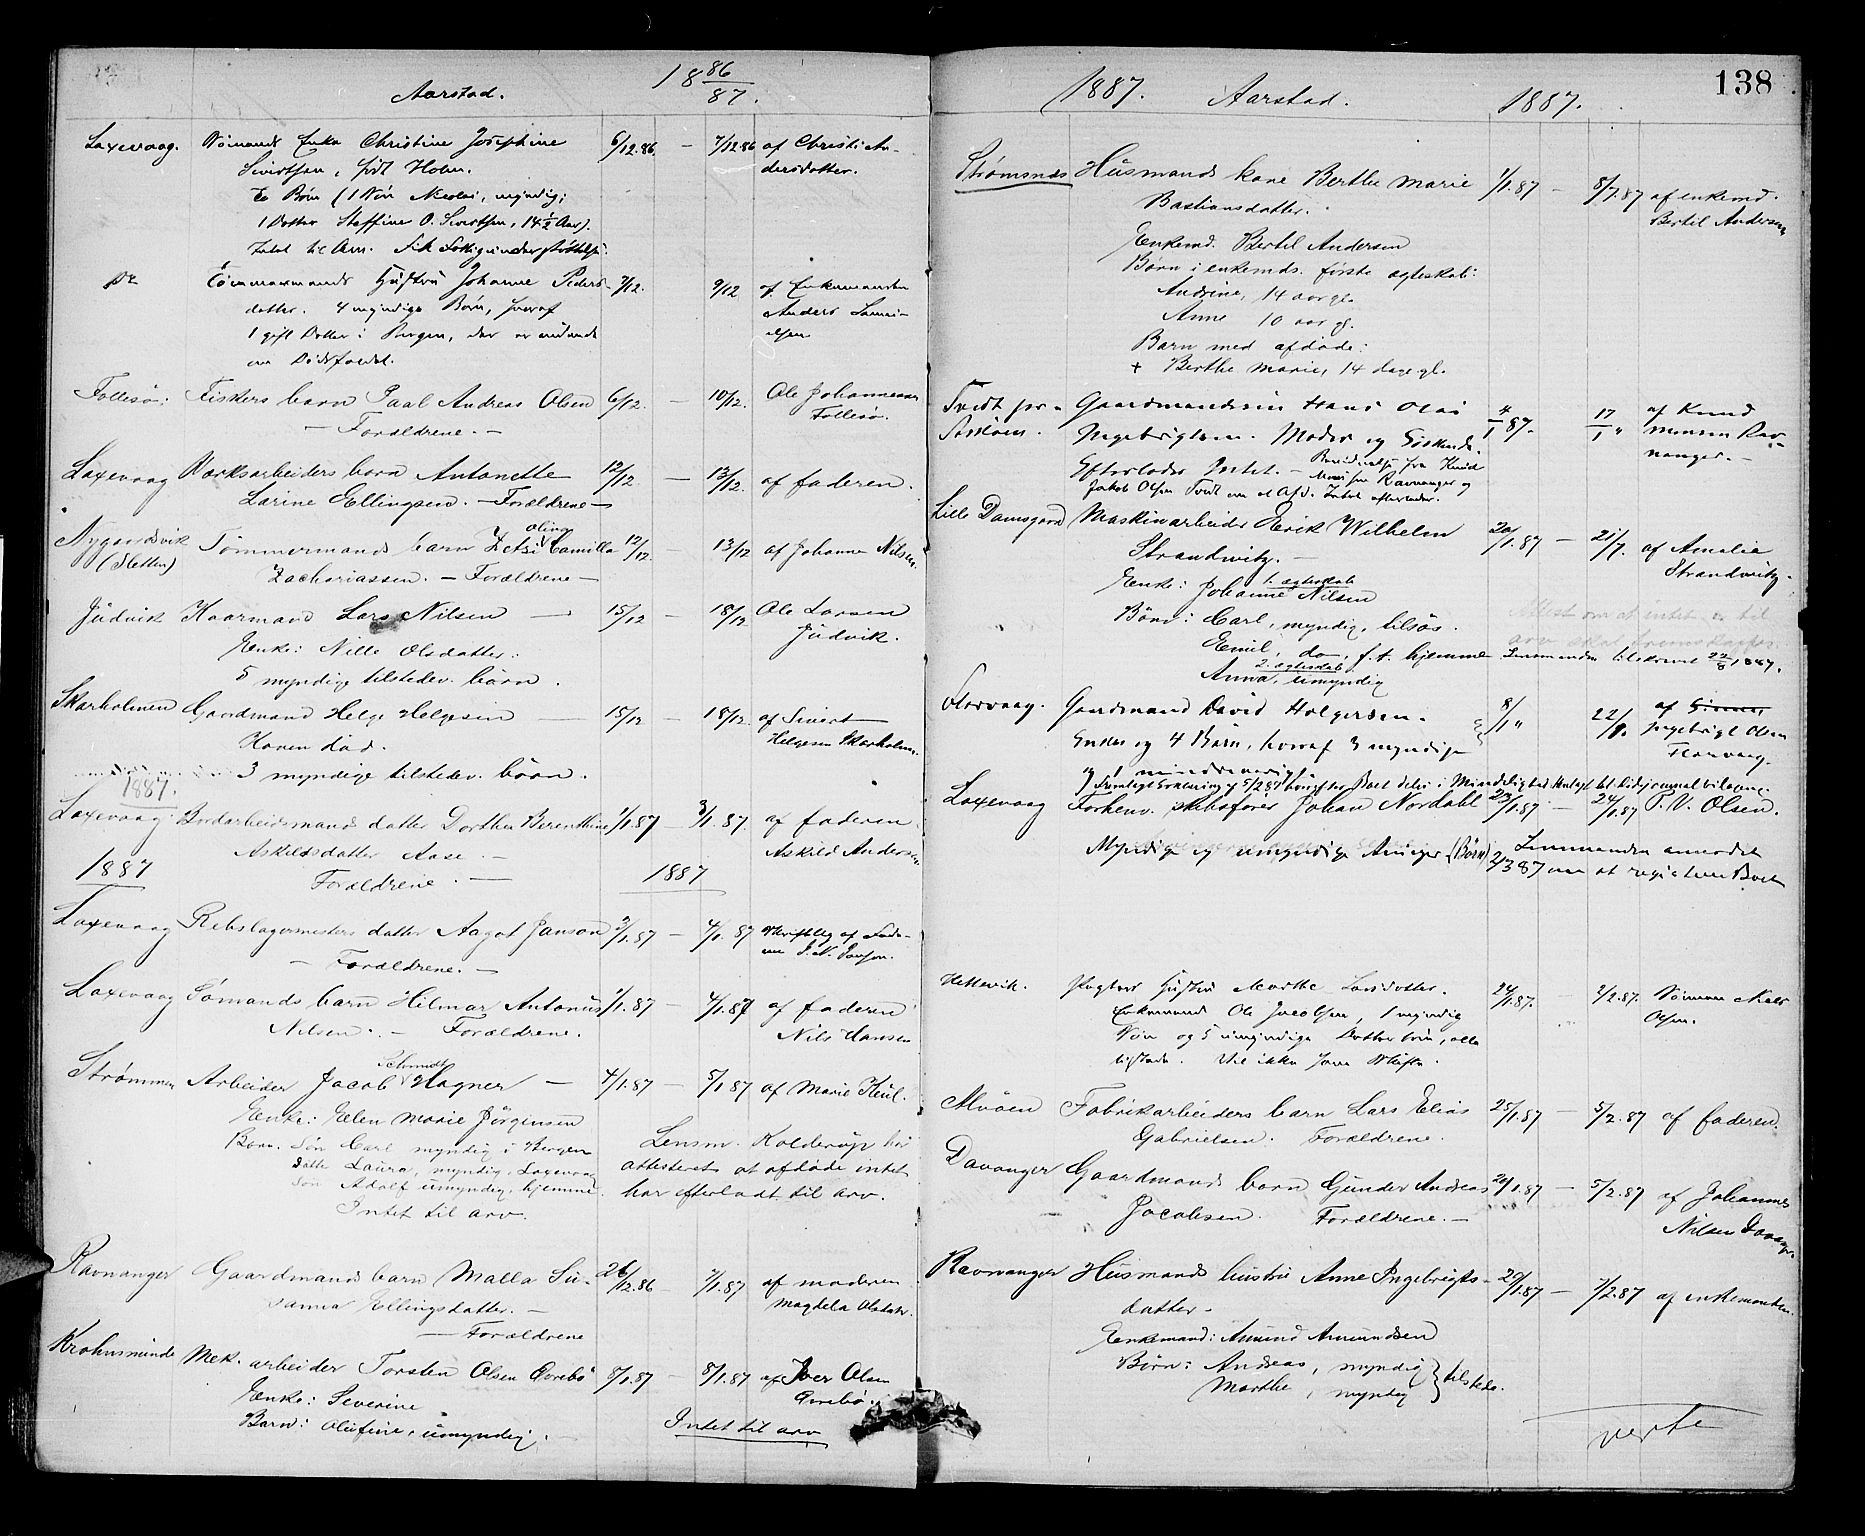 Aarstad. 18 86/87.
Laxevaag. Sömands Enke Christine Josephine 6/12.86. — 7/12.86 af Christi An-
Sivertsen, född Holm. dersdatter.
2 Börn (1 Sön Nicolai, myndig;
1 Datter Steffine O. Sivertsen, 14½ Aar).
Intet til Arv. Fik Fattigunderstöttelse.
Do Tömmermands Hustru Johanne Peders- 7/12. 9/12 af Enkemanden
datter. 4 myndige Börn, hvoraf Anders Samu-
1 gift Datter i Bergen, der er vidende elsen
om Dödsfaldet.
Follesö: Fiskers barn Paal Andreas Olsen 6/12. — 10/12. Ole Johannesen
— Forældrene. — Follesö.
Laxevaag Værksarbeiders barn Antonette 12/12 — 13/12. af faderen.
Larine Ellingsen. — Forældrene —
Nygaardsvik Tömmermands barn Zetsi Olina Camilla 12/12. — 13/12 af Johanne Nilsen.
(Sletten) Zachariassen. — Forældrene —
Judvik Kaarmand Lars Nilsen — 15/12 — 18/12 Ole Larsen
Enke: Nille Olsdatter: Judvik.
5 myndige tilstedev. börn.
Skarholmen Gaardmand Helge Helgesen — 15/12 — 18/12. af Sivert
Konen död. Helgesen Skarholmen.
3 myndige tilstedev. börn.
1887.
Laxevaag Jordarbeidsmands datter Dorthea Berenthine 1/1.87 — 3/1.87. af faderen
Askildsdatter Aase. — Askild Andersen
1887 Forældrene. — 1887
Laxevaag Rebslagermesters datter Aagot Janson 2/1.87 — 4/1.87 Skriftlig af Fade-
— Forældrene. — ren J. N. Janson.
Laxevaag Sömands barn Hilmar Antonius 1/1.87 — 4/1.87 af faderen
Nilsen. — Forældrene. Nils Hansen
Strömmen Arbeider Jacob Schmidt Hagner — 4/1.87 — 5/1.87 af Marie Keul.
Enke: Elen Marie Jörgensen
Börn. Sön Carl myndig i Bergen Lensm. Kolderup har
Datte Laura, myndig, Laxevaag attesteret at afdöde intet
Sön Adolf umyndig, hjemme. har efterladt til arv.
Intet til arv.
Ravnanger Gaardmands barn Malla Su- 26/12.86 — 7/1.87 af moderen
sanna Ellingsdatter. — Magdela Olsdatr.
— Forældrene
Krohnsminde Mek. arbeider Torsten Olsen Övrebö 8/1.87 — 8/1.87 af Iver Olsen
Enke: Severine Övrebö.
Barn: Olufine, umyndig. Intet til arv
1887. Aarstad. 1887. 138
Strömsnes Husmands kone Berthe Marie 1/1.87 — 8/1.87 af enkemd.
Bastiansdatter. Bertil Andersen
Enkemd. Bertil Andersen
Börn i enkemds. förste egteskab:
Andrine, 14 aar gl.
Anne 10 aar gl.
Barn med afdöde:
+ Berthe Marie, 14 dage gl.
Tvedt por- Gaardmandssön Hans Olai 4/1 87. 17/1 " af Knud
Asköen. Ingebrigtsen. Moder og Söskende. Monsen Rav-
Efterlader Intet. — nanger. —
Bevidnelse fra Knud
Monsen Ravnanger og
Jakob Olsen Tvedt om at Afd. Intet efterlader.
Lille Damsgaard Maskinarbeider Erik Wilhelm 20/1.87 — 21/1. af Amalie
Strandwitz. — Strandwitz.
Enke: Johanne Nilsen
1. egteskab
Börn: Carl, myndig, tilsös. Attest om at intet er til
Emil, do, f.t. hjemme arv skal fremskaffes.
2. egteskab Lensmanden tilskrevet 22/8 1887.
Anna, umyndig
Florvaag. Gaardmand David Holgersen. 8/1 " 22/1. af
Enke og 4 Börn, hvoraf 3 myndige Ingebrigt Olsen
og 1 mindreaarigt. Florvaag.
Laxevaag Forhenv. skibsförer Johan Nordahl 23/1.87 — 24/1.87 T. V. Olsen.
Myndige og umyndige Arvinger (Börn) Lensmanden anmodet
2/3 87 om at registrere Boet
Hettevik. Pagters Hustru Marthe Larsdatter. 24/1.87. — 2/2.87. Sönnen Nils
Enkemand Ole Jacobsen, 1 myndig Olsen.
Sön og 5 umyndige Datterbörn, alle
tilstede. Vil ikke have Skifte.
Alvöen Fabrikarbeiders barn Lars Elias 25/1.87 — 5/2.87 af faderen.
Gabrielsen. Forældrene.
Davanger Gaardmands barn Gunder Andreas 29/1.87 — 5/2.87 af Johannes
Jacobsen. Forældrene. — Nilsen Davanger.
Ravnanger Husmands hustru Anne Ingebrigts- 29/1.87 — 7/2.87 af enkemanden.
datter.
Enkemand: Amund Amundsen
Börn: Andreas, myndig } tilstede.
Marthe, myndig
verte